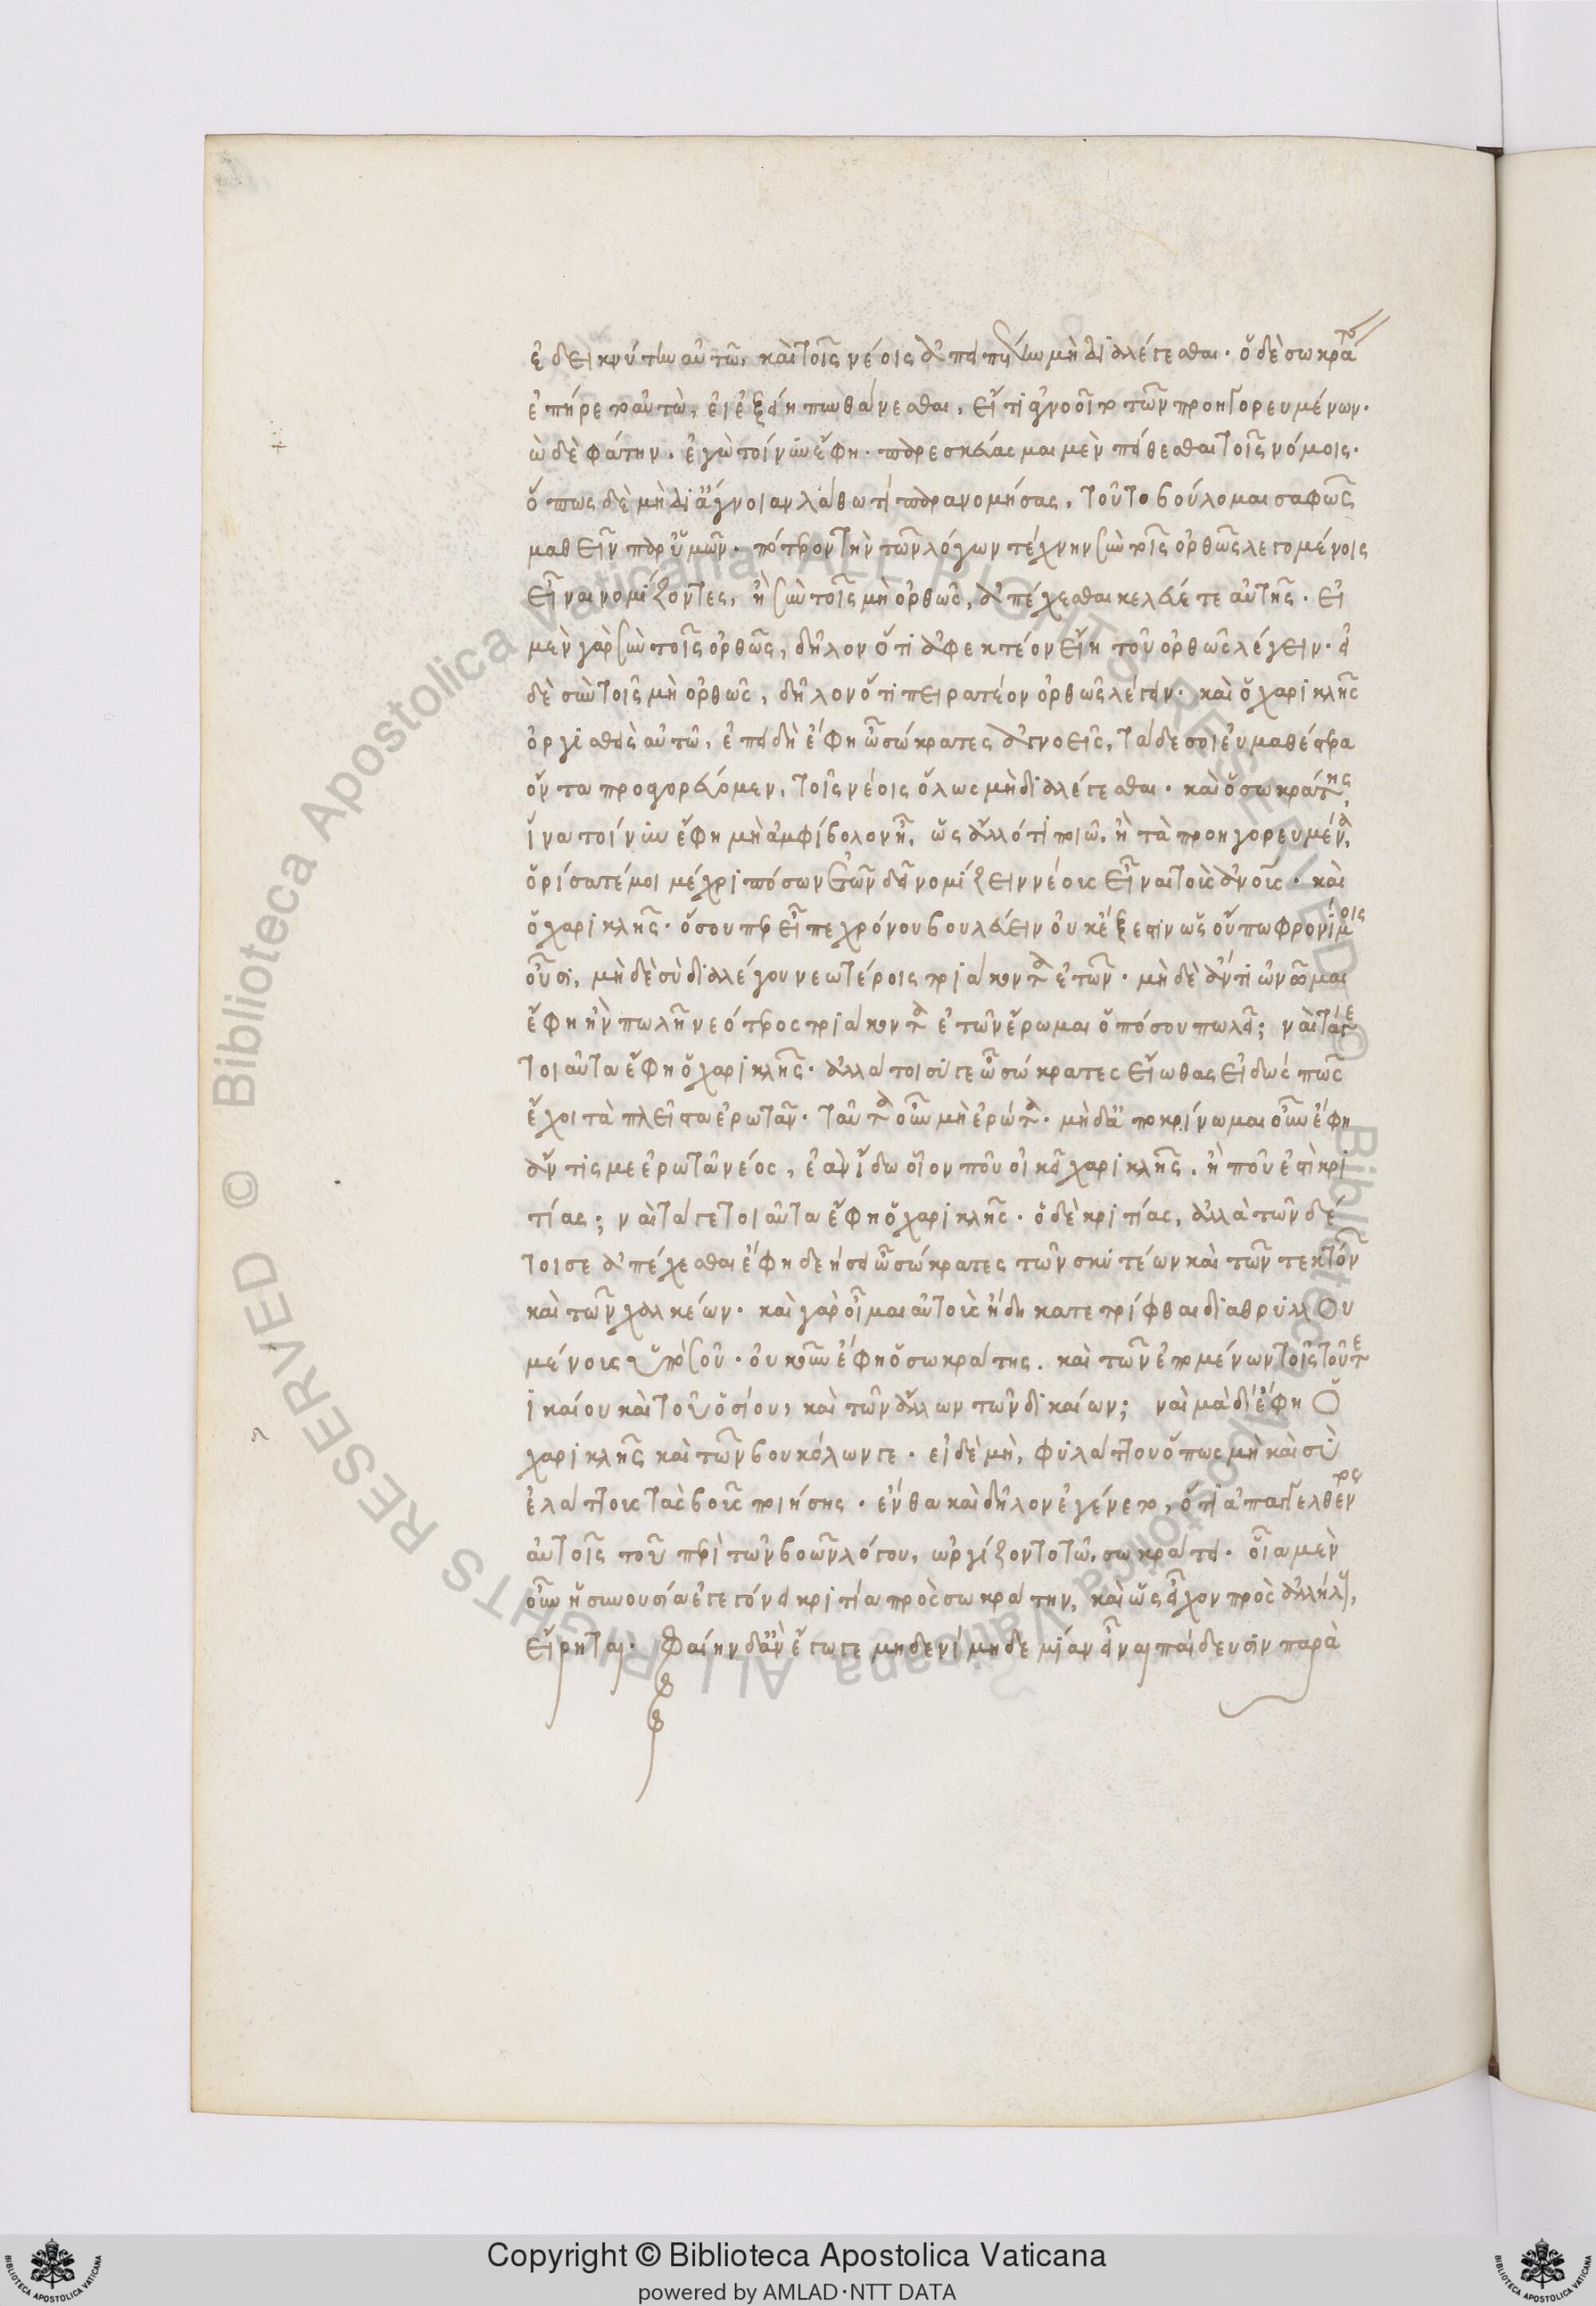 ἐδεικνύτην αὐτῶ, καὶ τοῖς νέοις ἀπειπέτην μὴ διαλέγεσθαι. ὁ δὲ σωκράτης
ἐπήρετο αὐτὼ, εἰ ἐξείη πυνθάνεσθαι, εἴ τι ἀγνοοῖτο τῶν προηγορευμένων.
ὡ δὲ φάτην. ἐγὼ τοίνυν ἔφη. παρεσκεύασμαι μὲν πείθεσθαι τοῖς νόμοις.
ὅπως δὲ μὴ δι' ἄγνοιαν λάθω τὶ παρανομήσας, τοῦτο βούλομαι σαφῶς
μαθεῖν παρ' ὑμῶν. πότερον τὴν τῶν λόγων τέχνην σὺν τοῖς ὀρθῶς λεγομένοις
εἶναι νομίζοντες, ἢ σὺν τοῖς μὴ ὀρθῶς, ἀπέχεσθαι κελεύετε αὐτῆς. εἰ
μὲν γὰρ σὺν τοῖς ὀρθῶς, δῆλον ὅτι ἀφεκτέον εἴη τοῦ ὀρθῶς λέγειν. εἰ
δὲ σὺν τοῖς μὴ ὀρθῶς, δῆλον ὅτι πειρατέον ὀρθῶς λέγειν. καὶ ὁ χαρικλῆς
ὀργισθεὶς αὐτῶ, ἐπειδὴ ἔφη ὦ σώκρατες ἀγνοεῖς, τάδε σοι εὐμαθέστερα
ὄντα προαγορεύομεν, τοῖς νέοις ὅλως μὴ διαλέγεσθαι. καὶ ὁ σωκράτης,
ἵνα τοίνυν ἔφη μὴ ἀμφίβολον ἦ, ὡς ἄλλό τι ποιῶ, ἢ τὰ προηγορευμένα,
ὁρίσατέ μοι μέχρι πόσων ἐτῶν δεῖ νομίζειν νέους εἶναι τοὺς ἀνους. καὶ
ὁ χαρικλῆς. ὅσου περ εἶπε χρόνου βουλεύειν οὐκ ἔξεστιν ὡς οὔπω φρονίμοις
οὖσι, μηδὲ σὺ διαλέγου νεωτέροις τριάκοντα ἐτῶν. μηδὲ ἄν τι ὠνῶμαι
ἔφη ἢν πωλῆ νεότερος τριάκοντα ἐτῶν ἔρωμαι ὁπόσου πωλεῖ; ναὶ τά γε
τοιαῦτα ἔφη ὁ χαρικλῆς. ἀλλά τοι σύ γε ὦ σώκρατες εἴωθας εἰδὼς πῶς
ἔχοι τὰ πλεῖστα ἐρωτᾶν. ταῦτα οὖν μὴ ἐρώτα. μηδ' ἀποκρίνωμαι οὖν ἔφη
ἄν τις με ἐρωτᾶ νέος, ἐὰν ἴδω οἷον ποῦ οἰκεῖ χαρικλῆς. ἢ ποῦ ἐστὶ κρι
τίας; ναὶ τά γε τοιαῦτα ἔφη ὁ χαρικλῆς. ὁ δὲ κριτίας, ἀλλὰ τῶν δέ
τοι σε ἀπέχεσθαι ἔφη δεήσει ὦ σώκρατες τῶν σκυτέων καὶ τῶν τεκτόνων
καὶ τῶν χαλκέων. καὶ γὰρ οἶμαι αὐτοὺς ἤδη κατετρίφθαι διαθρυλλου
μένους ὑπὸ σοῦ. οὐκοῦν ἔφη ὁ σωκράτης. καὶ τῶν ἑπομένων τοῖς τούτε
ικαίου καὶ τοῦ ὁσίου, καὶ τῶν ἄλλων τῶν δικαίων; ναὶ μὰ δί' ἔφη ὁ
χαρικλῆς καὶ τῶν βουκόλων γε. εἰ δὲ μὴ, φυλάττου ὅπως μὴ καὶ σὺ
ἐλάττους τὰς βοῦς ποιήσης. ἔνθα καὶ δῆλον ἐγένετο, ὅτι ἀπαγγελθέντος
αὐτοῖς τοῦ περὶ τῶν βοῶν λόγου, ὠργίζοντο τῶ σωκράτει. οἵα μὲν
οὖν ἡ συνουσία ἐγεγόνει κριτία πρὸς σωκράτην, καὶ ὡς εἶχον πρὸς ἀλλήλους,
εἴρηται. Φαίην δ' ἂν ἔγωγε μηδενὶ μηδεμίαν εἶναι παίδευσιν παρὰ
Copyright © Biblioteca Apostolica Vaticana
powered by AMLAD·NTT DATA